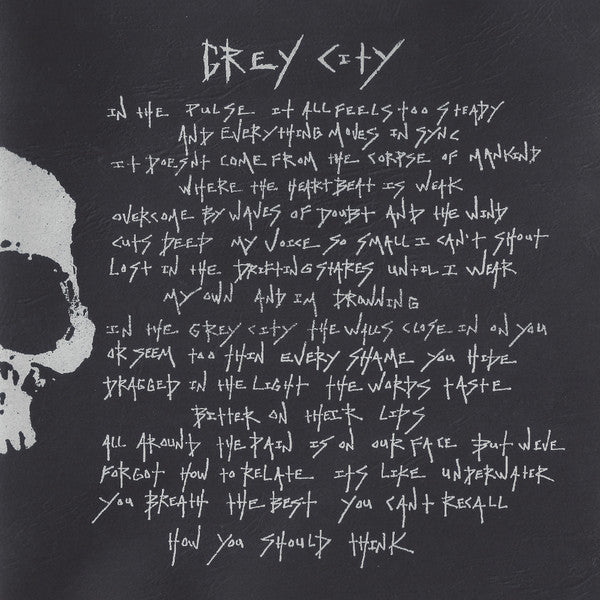 GREY CITY
IN THE PULSE IT ALL FEELS TOO STEADY
AND EVERYTHING MOVES IN SYNC
IT DOESNT COME FROM THE CORPSE OF MANKIND
WHERE THE HEARTBEAT IS WEAK
OVERCOME BY WAVES OF DOUBT AND THE WIND
CUTS DEEP MY VOICE SO SMALL I CAN'T SHOUT
LOST IN THE DRIFTING STARES UNTIL I WEAR
MY OWN AND IM DROWNING
IN THE GREY CITY THE WALLS CLOSE IN ON YOU
OR SEEM TOO THIN EVERY SHAME YOU HIDE
DRAGGED IN THE LIGHT THE WORDS TASTE
BITTER ON THEIR LIPS
ALL AROUND THE PAIN IS ON OUR FACE BUT WEVE
FORGOT HOW TO RELATE ITS LIKE UNDERWATER
YOU BREATH THE BEST YOU CANT RECALL
HOW YOU SHOULD THINK